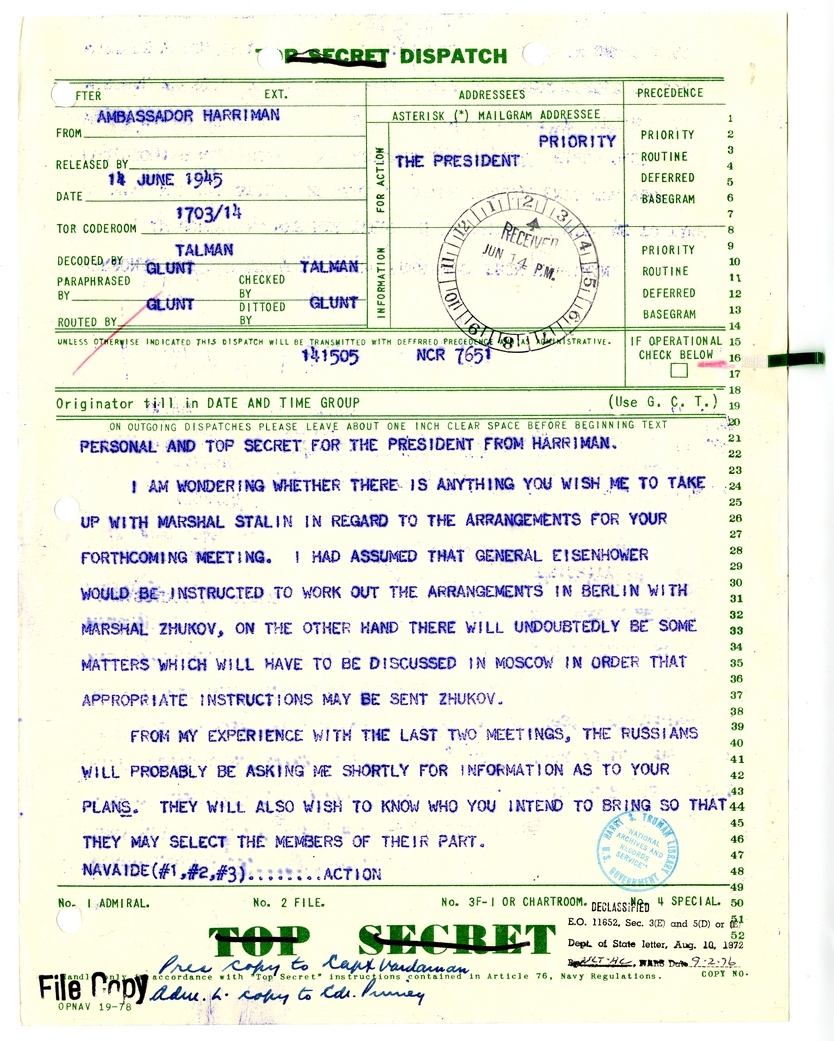 TOP SECRET DISPATCH
FTER EXT. ADDRESSEES PRECEDENCE
AMBASSADOR HARRIMAN ASTERISK (*) MAILGRAM ADDRESSEE
FROM
PRIORITY
RELEASED BY
THE PRESIDENT
14 JUNE 1945
DATE
1703/14
TOR CODEROOM
TALMAN
DECODED BY
GLUNT TALMAN
PARAPHRASED BY CHECKED BY
GLUNT GLUNT
ROUTED BY DITTOED BY
FOR ACTION
INFORMATION
PRIORITY
ROUTINE
DEFERRED
BASEGRAM
PRIORITY
ROUTINE
DEFERRED
BASEGRAM
RECEIVED
JUN 14 P.M.
12 1 2 3 4 5 6 7 8 9 10 11
UNLESS OTHERWISE INDICATED THIS DISPATCH WILL BE TRANSMITTED WITH DEFERRED PRECEDENCE AS ADMINISTRATIVE.
141505 NCR 7651
IF OPERATIONAL
CHECK BELOW
Originator fill in DATE AND TIME GROUP (Use G. C. T.)
ON OUTGOING DISPATCHES PLEASE LEAVE ABOUT ONE INCH CLEAR SPACE BEFORE BEGINNING TEXT
PERSONAL AND TOP SECRET FOR THE PRESIDENT FROM HARRIMAN.
I AM WONDERING WHETHER THERE IS ANYTHING YOU WISH ME TO TAKE
UP WITH MARSHAL STALIN IN REGARD TO THE ARRANGEMENTS FOR YOUR
FORTHCOMING MEETING. I HAD ASSUMED THAT GENERAL EISENHOWER
WOULD BE INSTRUCTED TO WORK OUT THE ARRANGEMENTS IN BERLIN WITH
MARSHAL ZHUKOV, ON THE OTHER HAND THERE WILL UNDOUBTEDLY BE SOME
MATTERS WHICH WILL HAVE TO BE DISCUSSED IN MOSCOW IN ORDER THAT
APPROPRIATE INSTRUCTIONS MAY BE SENT ZHUKOV.
FROM MY EXPERIENCE WITH THE LAST TWO MEETINGS, THE RUSSIANS
WILL PROBABLY BE ASKING ME SHORTLY FOR INFORMATION AS TO YOUR
PLANS. THEY WILL ALSO WISH TO KNOW WHO YOU INTEND TO BRING SO THAT
THEY MAY SELECT THE MEMBERS OF THEIR PART.
NAVAIDE(#1,#2,#3)........ACTION
1
2
3
4
5
6
7
8
9
10
11
12
13
14
15
16
17
18
19
20
21
22
23
24
25
26
27
28
29
30
31
32
33
34
35
36
37
38
39
40
41
42
43
44
45
46
47
48
49
50
51
52
HARRY S. TRUMAN LIBRARY
NATIONAL
ARCHIVES AND
RECORDS
SERVICE
U.S. GOVERNMENT
No. 1 ADMIRAL. No. 2 FILE. No. 3F-1 OR CHARTROOM. No. 4 SPECIAL.
DECLASSIFIED
E.O. 11652, Sec. 3(E) and 5(D) or (E)
Dept. of State letter, Aug. 10, 1972
By NLT-HC, NARS Date 9-2-76
TOP SECRET
Pres copy to Capt Vardaman
Handle only in accordance with "Top Secret" instructions contained in Article 76, Navy Regulations. COPY NO.
File Copy
Adm. L. copy to Cdr. Pinney
OPNAV 19-78